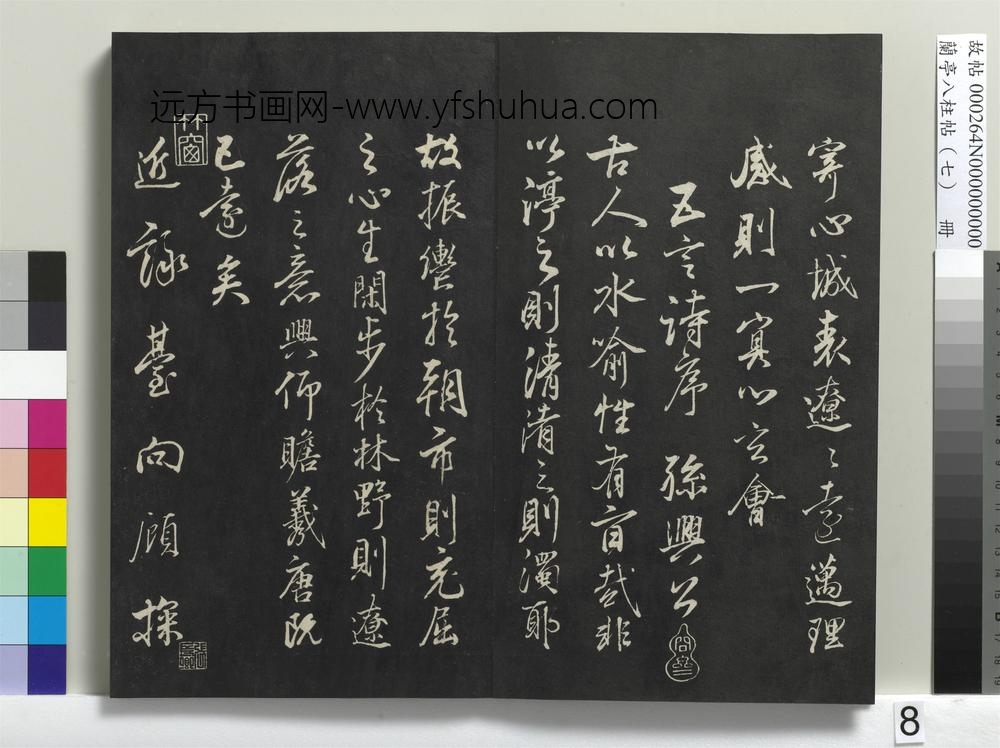 寄心城表遼〻遠邁理
感則一冥心之會
五言詩序 孫興公
古人以水喻性有旨哉非
以渟之則清淆之則濁耶
故振轡於朝市則充屈
之心生閑步於林野則遼
落之意興仰瞻羲唐既
已遠矣
近詠臺向顧探
竹窗
远方书画网-www.yfshuhua.com
故帖 000264N000000000
蘭亭八柱帖(七) 冊
8